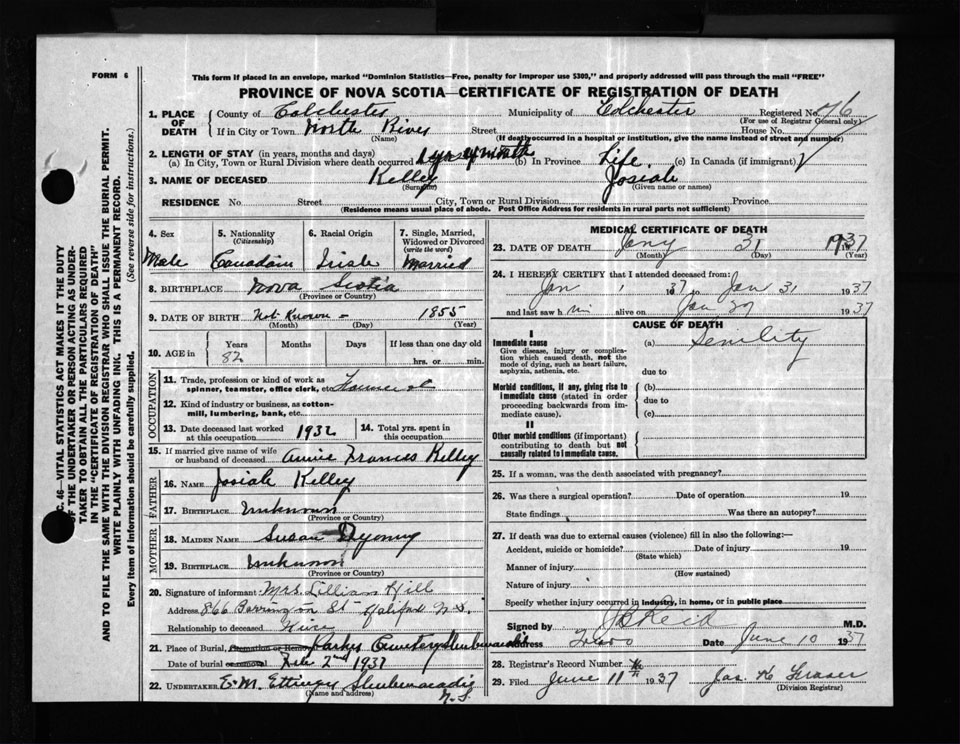 FORM 6
This form if placed in an envelope, marked "Dominion Statistics—Free, penalty for improper use $300," and properly addressed will pass through the mail "FREE"
PROVINCE OF NOVA SCOTIA—CERTIFICATE OF REGISTRATION OF DEATH
C. 46—VITAL STATISTICS ACT MAKES IT THE DUTY
OF THE UNDERTAKER OR PERSON ACTING AS UNDER-
TAKER TO OBTAIN ALL THE PARTICULARS REQUIRED
IN THE "CERTIFICATE OF REGISTRATION OF DEATH"
AND TO FILE THE SAME WITH THE DIVISION REGISTRAR WHO SHALL ISSUE THE BURIAL PERMIT.
WRITE PLAINLY WITH UNFADING INK. THIS IS A PERMANENT RECORD.
Every item of information should be carefully supplied. (See reverse side for instructions.)
1. PLACE OF DEATH
County of Colchester Municipality of Colchester Registered No.
(For use of Registrar General only)
If in City or Town North River Street House No.
(Name) (If death occurred in a hospital or institution, give the name instead of street and number)
2. LENGTH OF STAY (in years, months and days)
(a) In City, Town or Rural Division where death occurred (b) In Province Life. (c) In Canada (if immigrant)
3. NAME OF DECEASED Kelley Josiah
(Surname) (Given name or names)
RESIDENCE No. Street City, Town or Rural Division Province
(Residence means usual place of abode. Post Office Address for residents in rural parts not sufficient)
4. Sex
Male
5. Nationality
(Citizenship)
Canadian
6. Racial Origin
Irish
7. Single, Married, Widowed or Divorced
(write the word)
Married
8. BIRTHPLACE Nova Scotia
(Province or Country)
9. DATE OF BIRTH Not Known – 1855
(Month) (Day) (Year)
10. AGE in Years Months Days If less than one day old
82 hrs. or min.
OCCUPATION
11. Trade, profession or kind of work as
spinner, teamster, office clerk, etc.
12. Kind of industry or business, as cotton-
mill, lumbering, bank, etc.
13. Date deceased last worked
at this occupation 1932
14. Total yrs. spent in
this occupation
15. If married give name of wife
or husband of deceased Annie Frances Kelley
FATHER
16. NAME Josiah Kelley
17. BIRTHPLACE Unknown
(Province or Country)
MOTHER
18. MAIDEN NAME Susan
19. BIRTHPLACE Unknown
(Province or Country)
20. Signature of informant Mrs. Lillian Hill
Address 866 Barrington St Halifax N.S.
Relationship to deceased
21. Place of Burial, Cremation or Removal Cemetery Shubenacadie
Date of burial or removal Feb 2nd 1937
22. UNDERTAKER E. M. Ettinger Shubenacadie
(Name and address) N.S.
MEDICAL CERTIFICATE OF DEATH
23. DATE OF DEATH Jany 31 1937
(Month) (Day) (Year)
24. I HEREBY CERTIFY that I attended deceased from:
Jan 1 37 to Jan 31 1937
and last saw h im alive on Jan 1937
CAUSE OF DEATH
I
Immediate cause
Give disease, injury or complica-
tion which caused death, not the
mode of dying, such as heart failure,
asphyxia, asthenia, etc.
(a) Senility
due to
Morbid conditions, if any, giving rise to
immediate cause (stated in order
proceeding backwards from im-
mediate cause).
(b)
due to
(c)
II
Other morbid conditions (if important)
contributing to death but not
causally related to immediate cause.
25. If a woman, was the death associated with pregnancy?
26. Was there a surgical operation? Date of operation 19
State findings Was there an autopsy?
27. If death was due to external causes (violence) fill in also the following:—
Accident, suicide or homicide? Date of injury 19
(State which)
Manner of injury
(How sustained)
Nature of injury
Specify whether injury occurred in industry, in home, or in public place
Signed by Reid M.D.
Address Truro Date June 10 1937
28. Registrar's Record Number
29. Filed June 11th 1937 Jas. K Fraser
(Division Registrar)